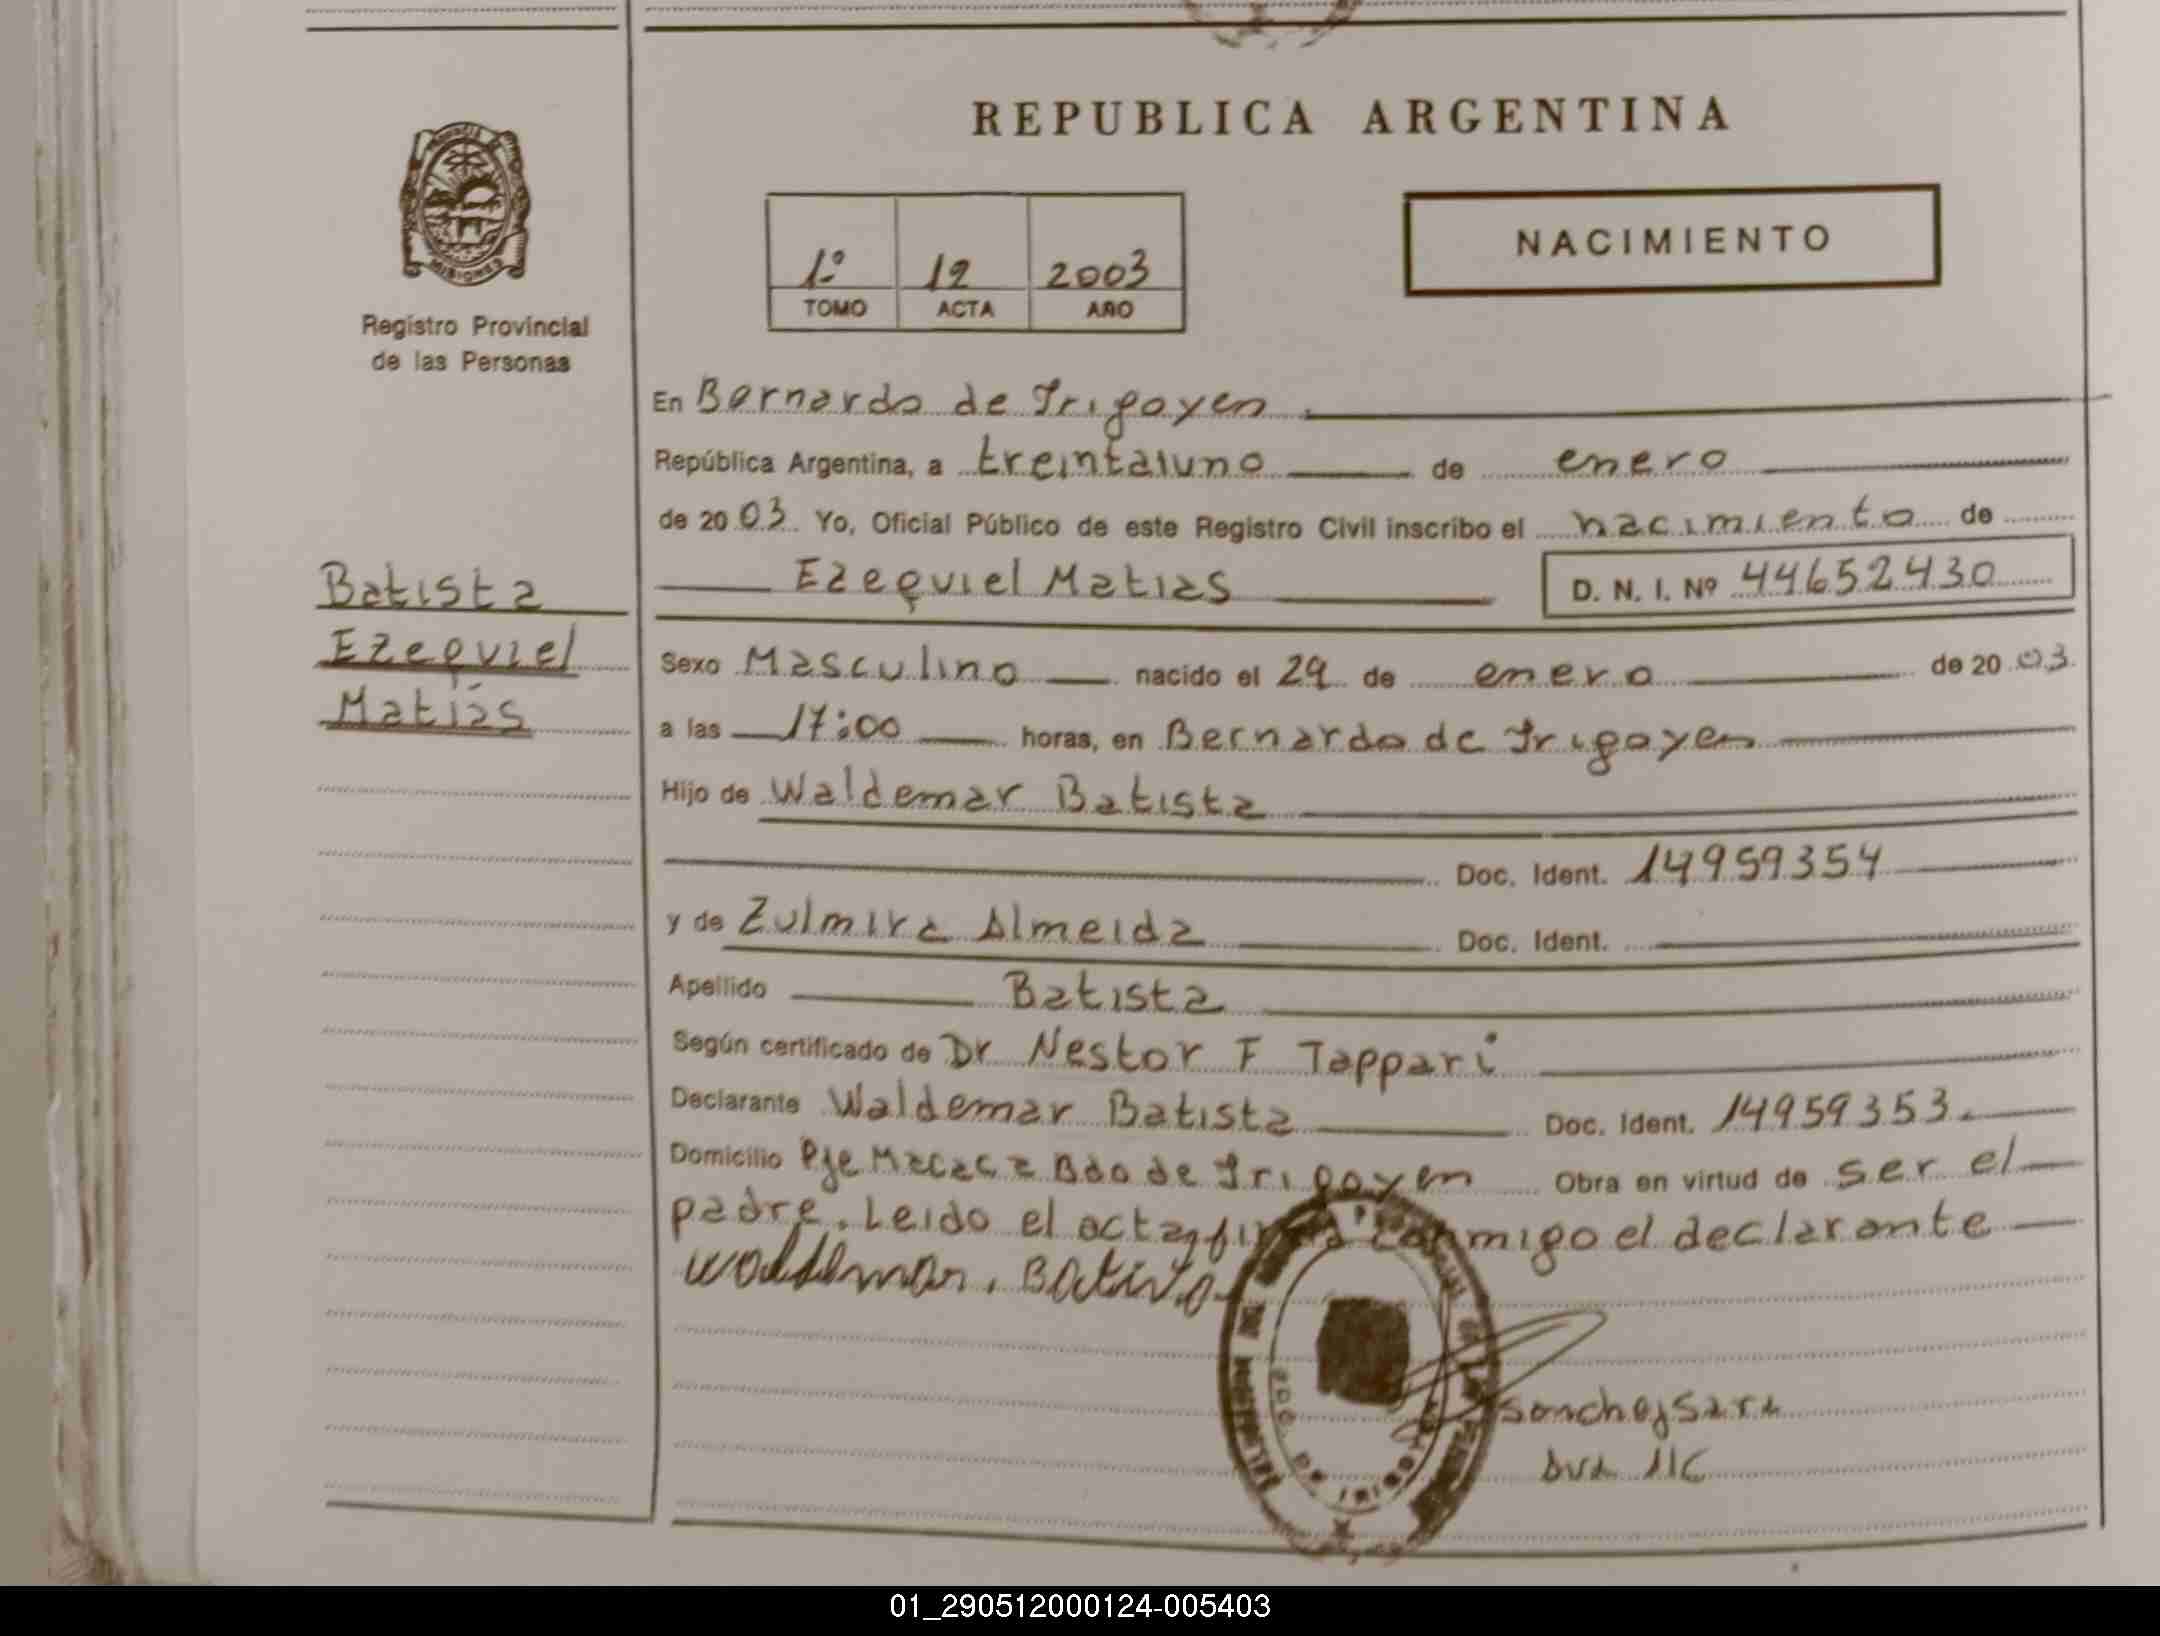 REPUBLICA ARGENTINA
PROVINCIA
MISIONES
Registro Provincial
de las Personas
1º 12 2003
TOMO ACTA AÑO
NACIMIENTO
En Bernardo de Irigoyen
República Argentina, a treintaiuno de enero
de 2003 Yo, Oficial Público de este Registro Civil inscribo el nacimiento de
Ezequiel Matias D. N. I. Nº 44652430
Batista
Ezequiel
Matías
Sexo Masculino nacido el 29 de enero de 2003
a las 17:00 horas, en Bernardo de Irigoyen
Hijo de Waldemar Batista
Doc. Ident. 14959354
y de Zulmira Almeida Doc. Ident.
Apellido Batista
Según certificado de Dr Nestor F Tappari
Declarante Waldemar Batista Doc. Ident. 14959353.
Domicilio Pje Macaca Bdo de Irigoyen Obra en virtud de ser el
padre. Leido el acta, firma conmigo el declarante
Waldemar. Batista
BDO. DE IRIGOYEN
01_290512000124-005403